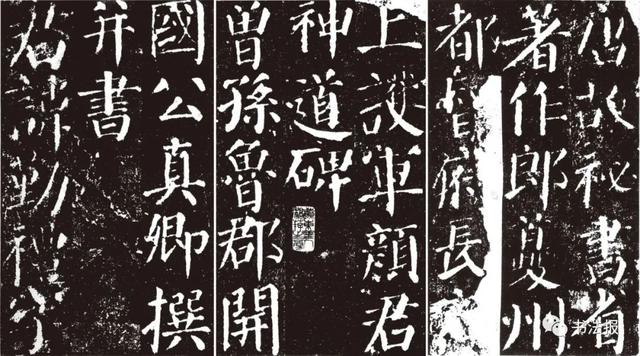 唐故祕書省
著作郎夔州
都督府長史
上護軍顏君
神道碑
曾孫魯郡開
國公真卿撰
并書
君諱勤禮字
书法报